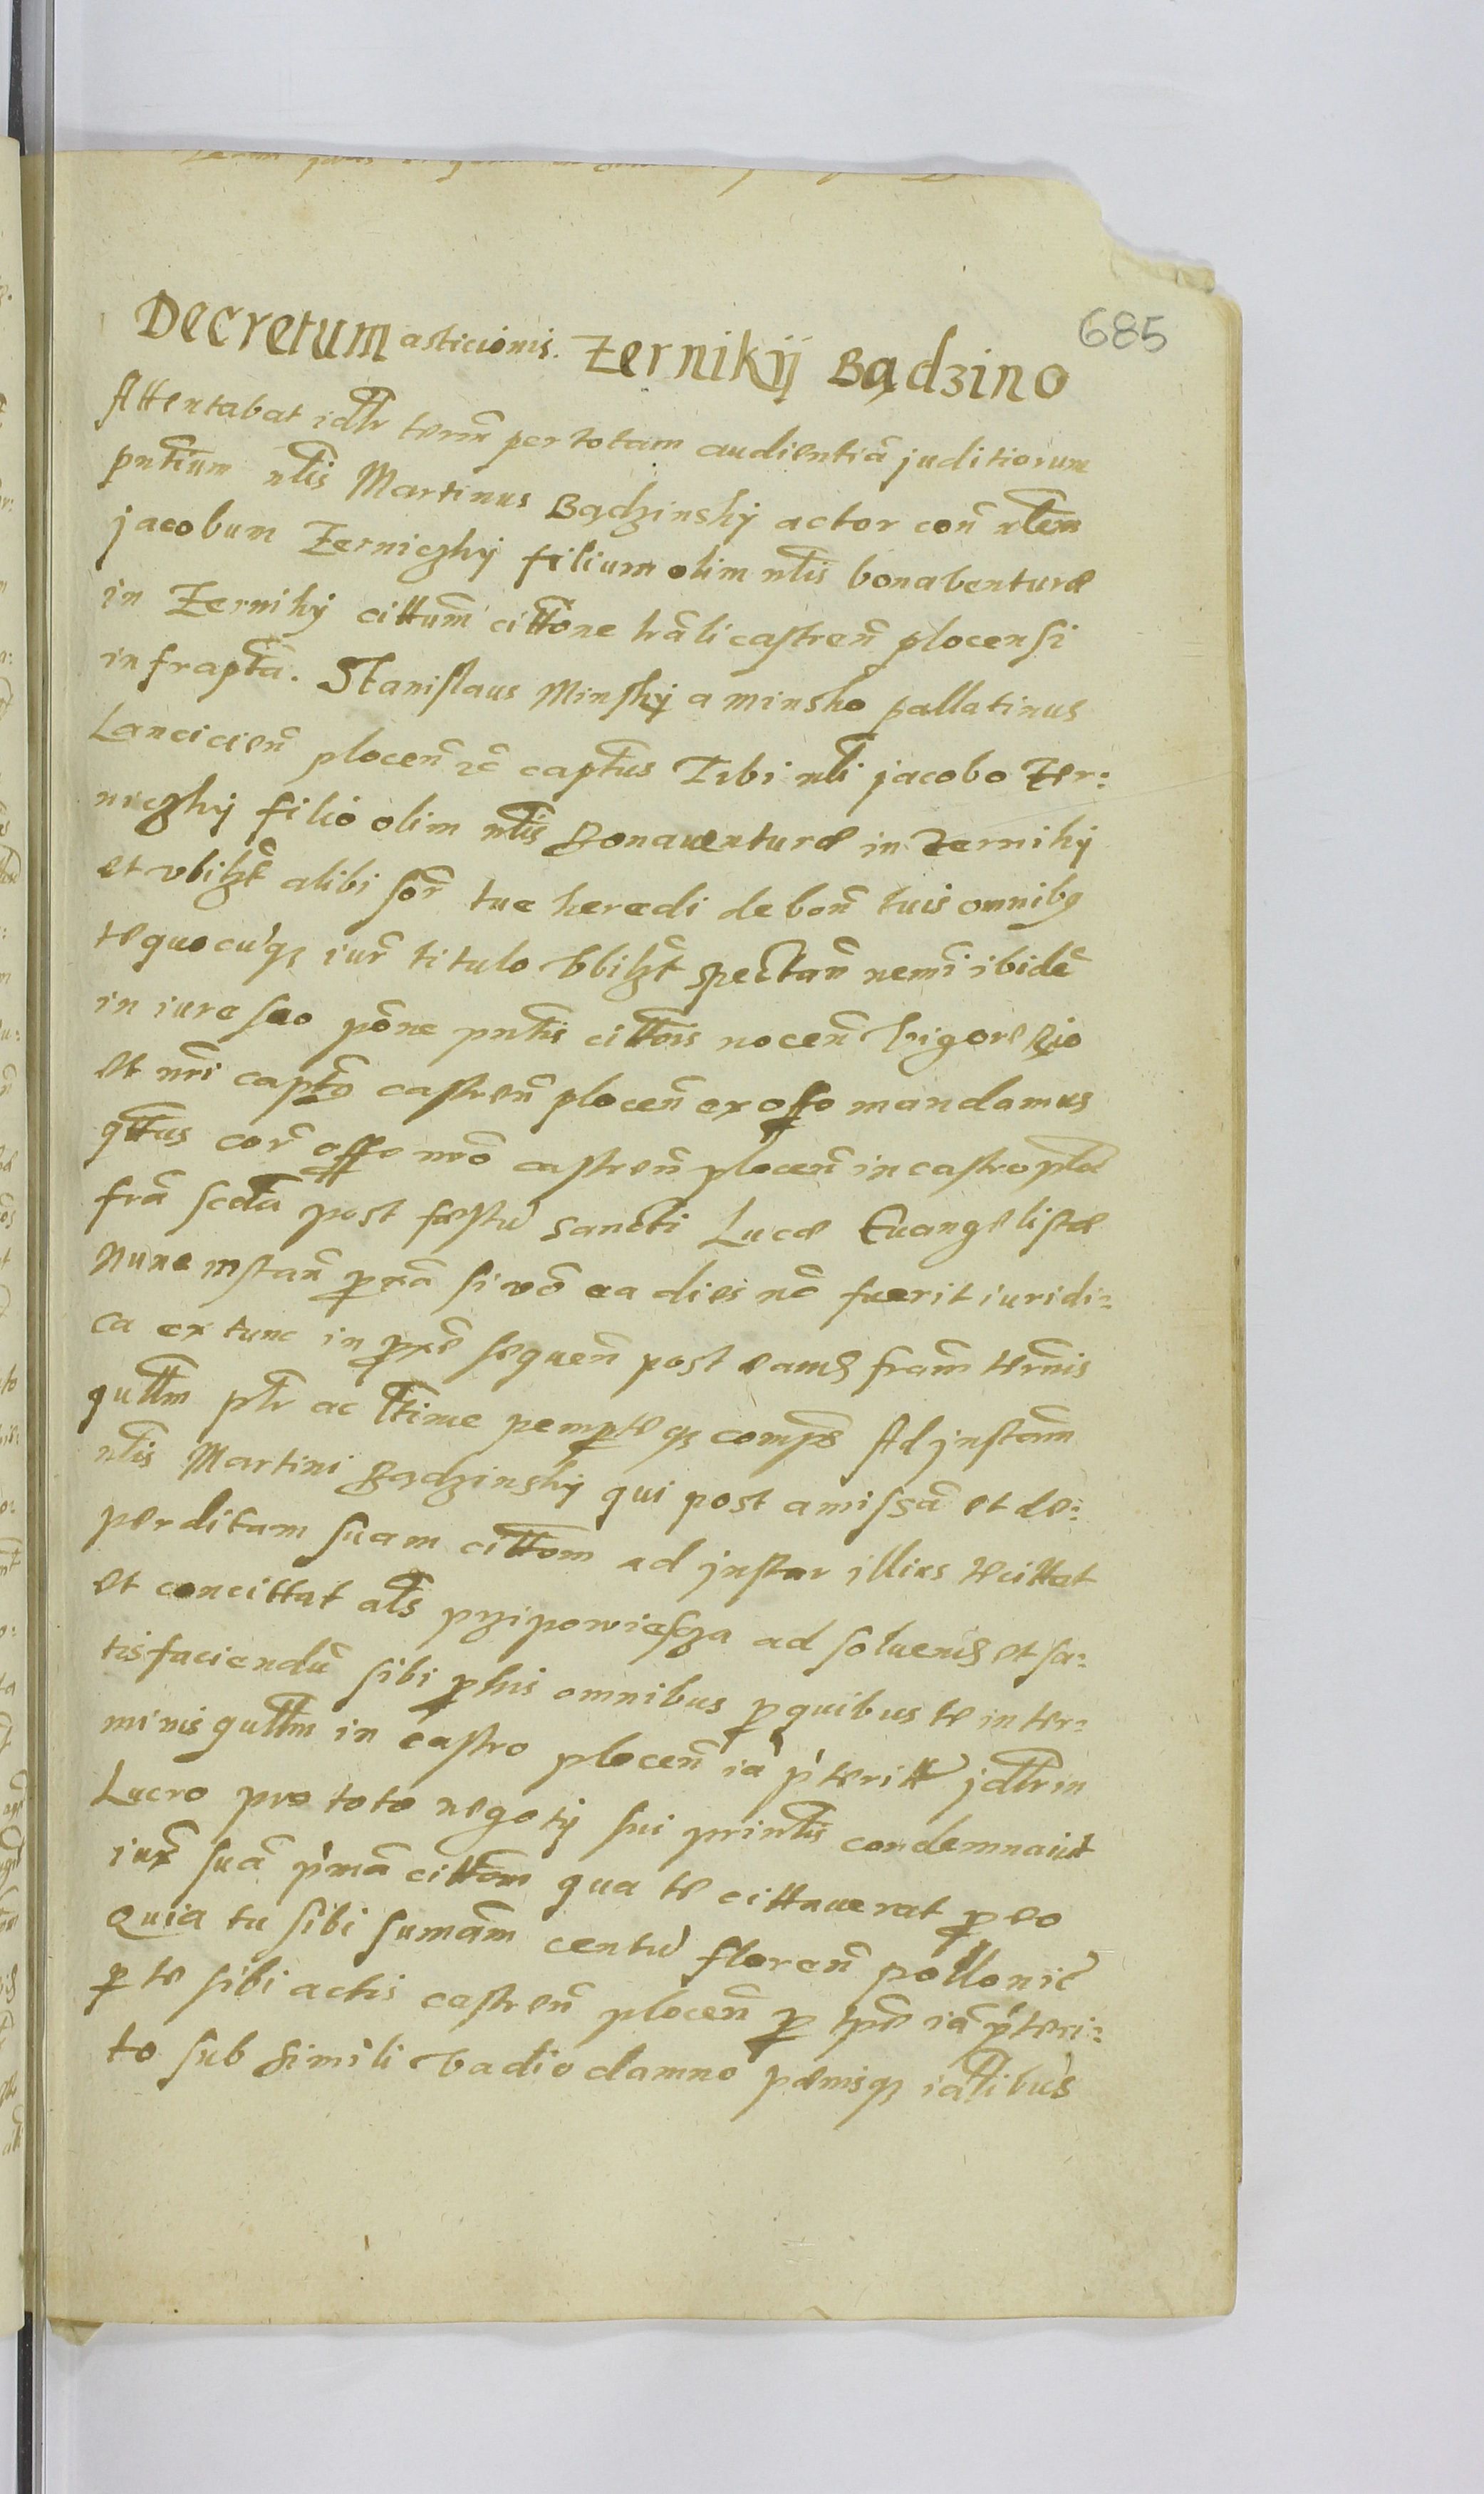 685
Decretum asticionis. Zernikij Bądzino
Attentabat idtr term̃ per totam audientiã juditiorum
pntium nlis Martinus Bądzinskÿ actor con̄ nlem
jacobum Zerniczkÿ filium olim nlis bonabenturæ
in Zernikÿ cittum̃ cittone lrãli castren̄ plocensi
infraptã. Stanislaus Minskÿ a minsko pallatinus
Lancicien̄ plocen̄ zc̄ captus Tibi nli jacobo Zer:
niczkÿ filio olim nlis Bonauenturæ in Zernikÿ
et vbilzt̃ alibi sor̃ tue heredi de bon̄ tuis omnibq
te quocu'qz iur̃ titulo vbilzt̃ spectan̄ nemĩ ibidẽ
in iure suo põne pntis cittõis nocen̄ vigore
et nrĩ captq̃ castren̄ plocen̄ ex offo mandamus
qttus cor̃ offo nrõ castren̄ plocen̄ in castro pld
frã scda post festu' sancti Lucæ Euangelistæ
nunc instan̄ pxã si võ ea dies nõ fuerit iuridi:
ca ex tunc in pxẽ sequen̄ post eamq frãm tẽrnis
quttm ptr ac ltime pempteqz compẽ Ad jnstãm
nlis Martini Bądzinskÿ qui post amissã et de:
perditam suam cittom ad jnstar illius recittat
et concittat als przipowiescza ad soluend et sa:
tisfaciendũ sibi p his omnibus p quibus te in ter:
minis quttm in castro plocen̄ iã p'teritt jdtr in
Lucro pro toto negotÿ sui printis condemnauit
iux̃ suã p'mã cittom qua te cittauerat p eo
Quia tu sibi sumãm centu' floren̄ pollonic̃
p te sibi actis castren̄ plocen̄ p tpẽ iã p'teri:
to sub simili vadio damno pænisqz iatlibus